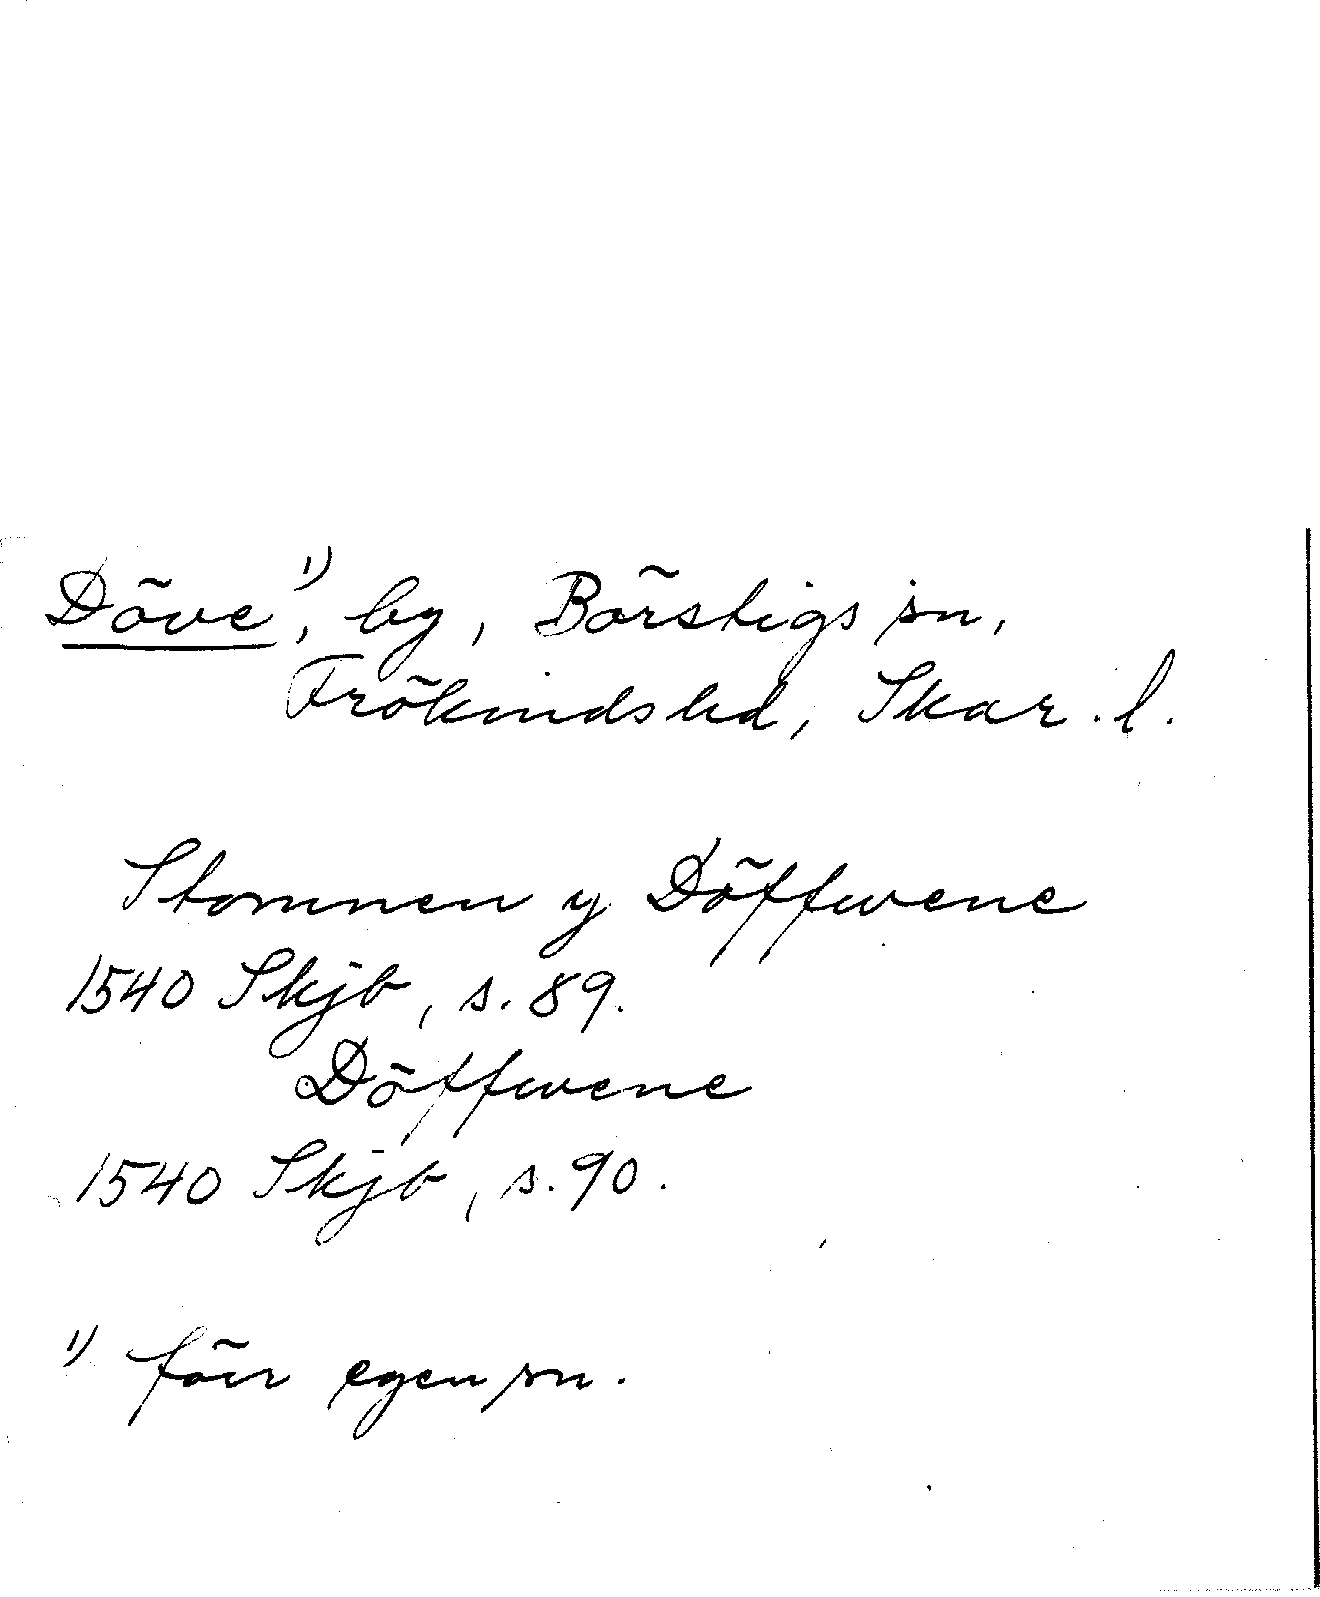 Döve¹⁾, by, Börstigs sn,
Frökinds hd, Skar. l.
Stommen y Döffwene
1540 Skjb, s. 89.
Döffwene
1540 Skjb, s. 90.
¹⁾ förr egen sn.